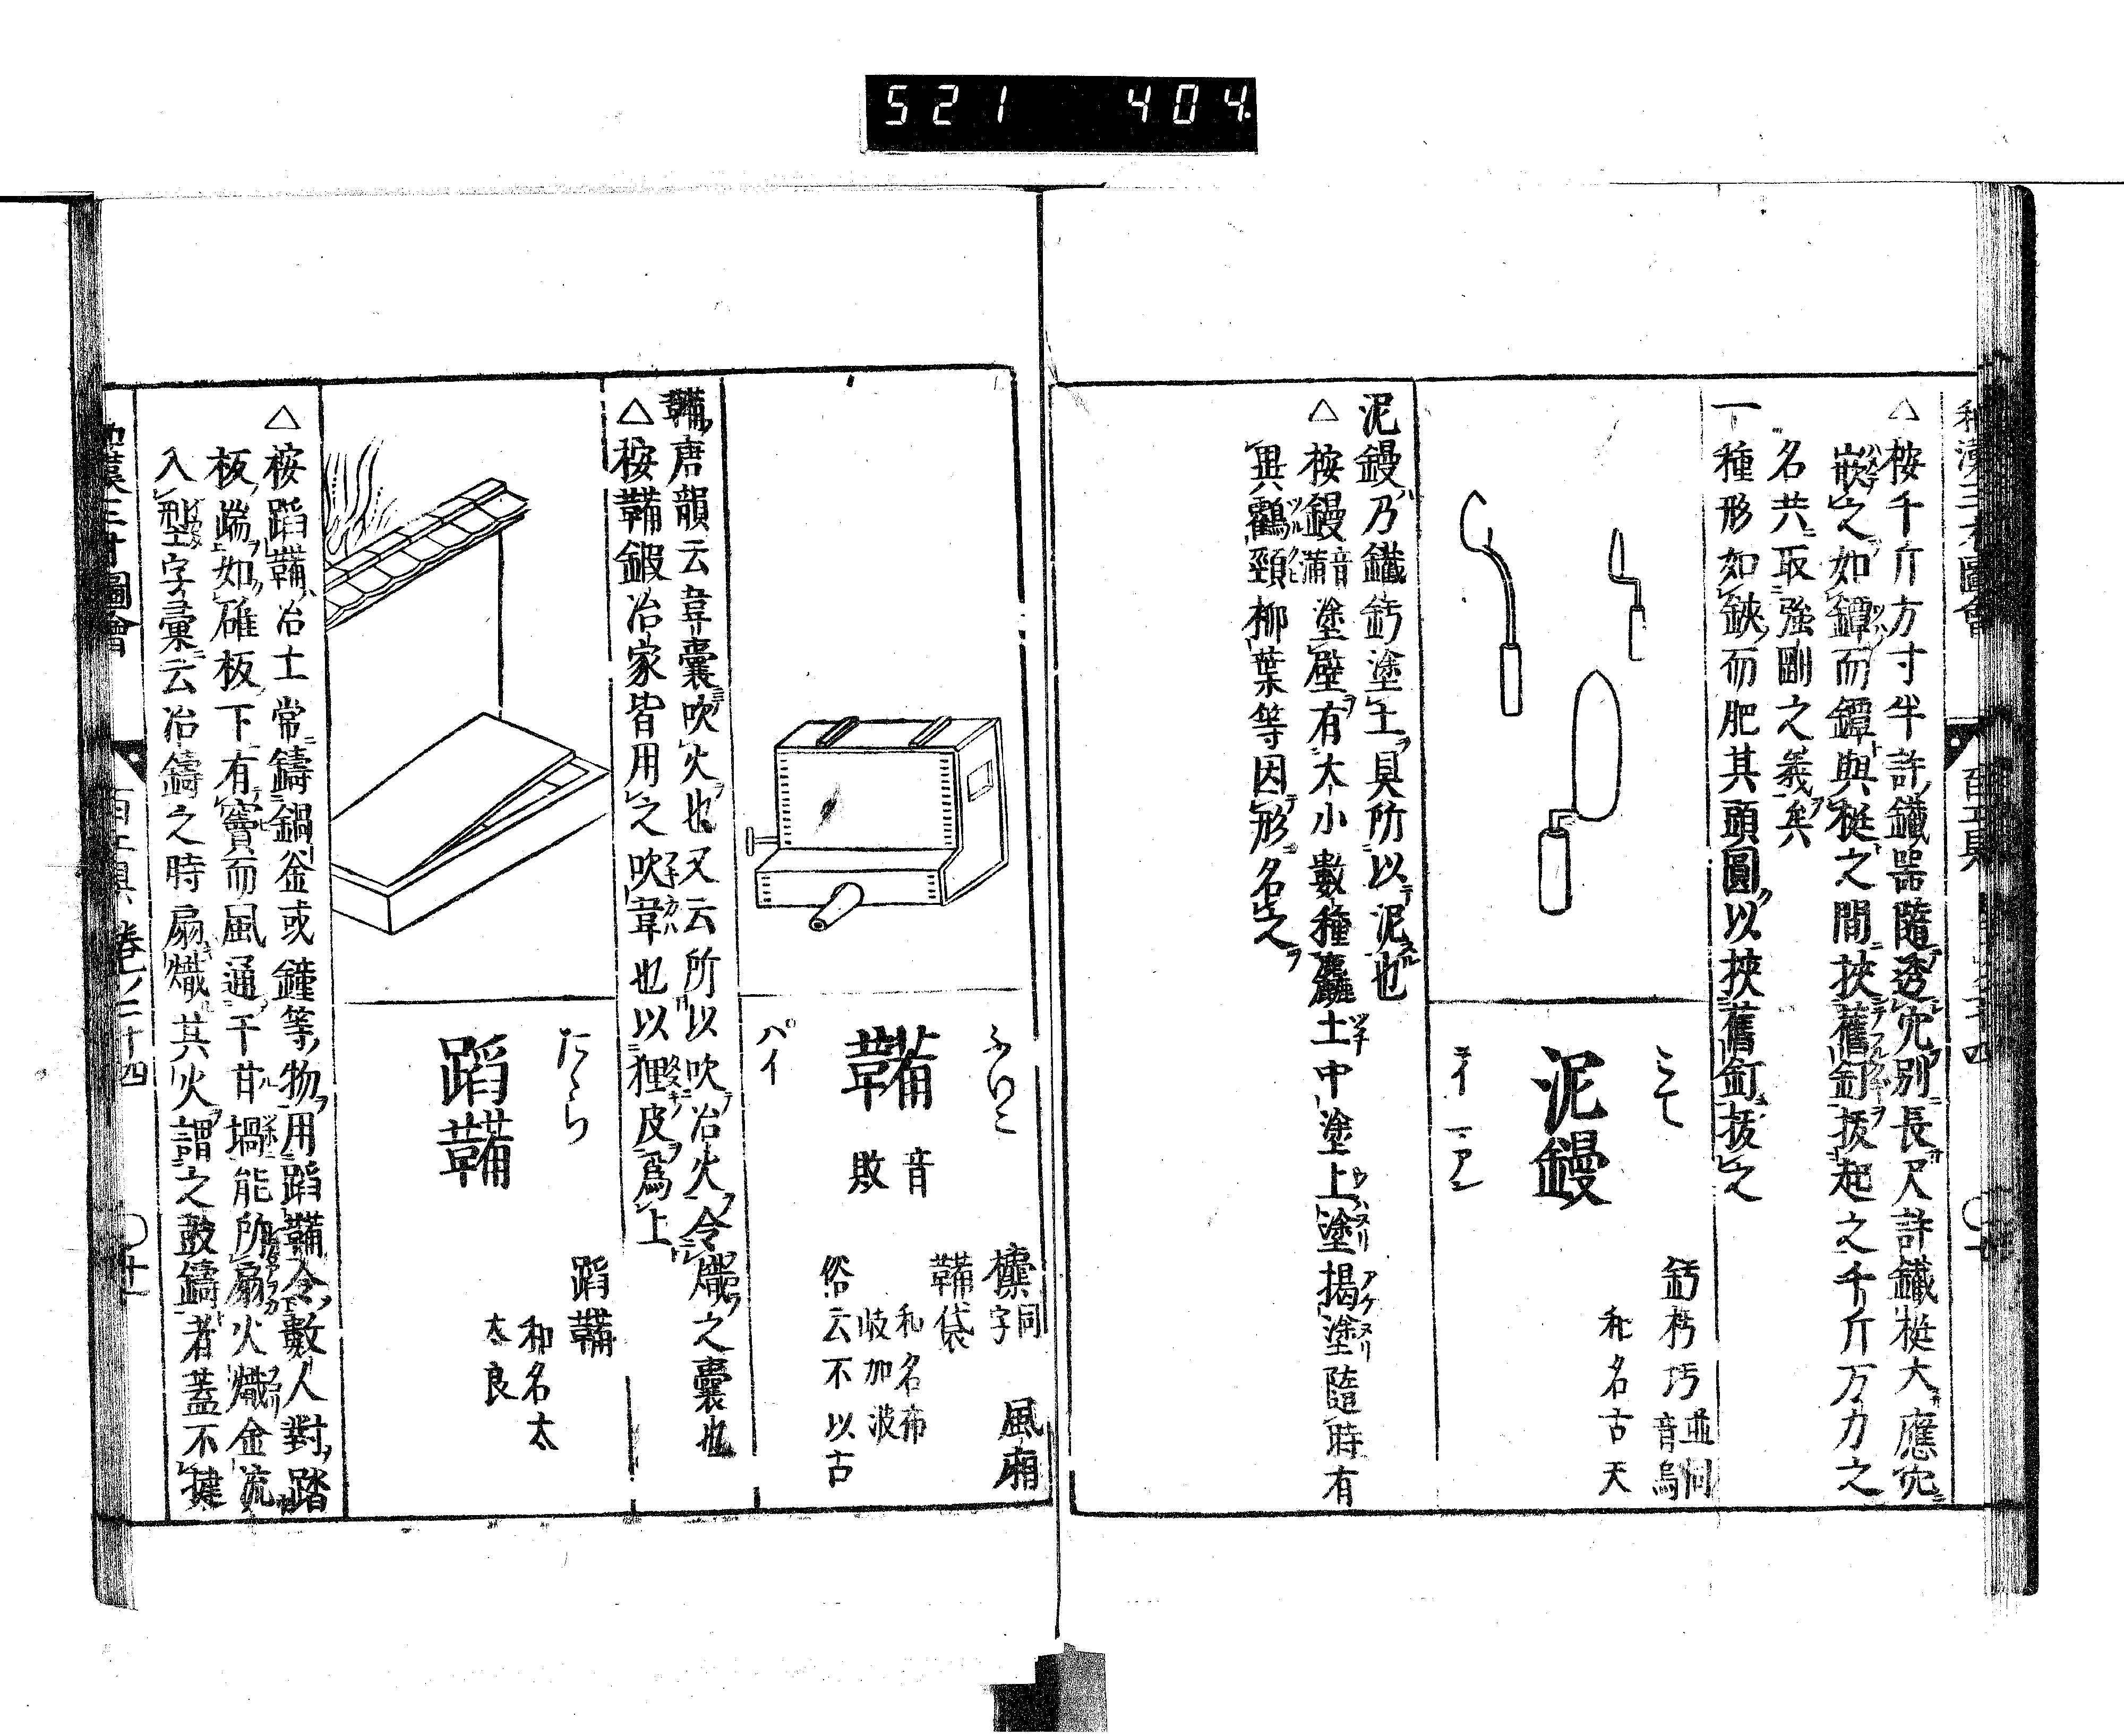 521 404.
和漢三才圖會 百工具
△按千斤方寸半許鐵噐隨透穴別長尺許鐵梃大應穴
嵌之如鐔而鐔與梃之間挾舊釘拔起之千斤万力之
名共取強剛之義矣
一種形如鋏而肥其頭圓以挾舊釘拔之
こて
泥鏝
ヲイ マアン
釫 杇 圬 並同音烏
和名古天
泥鏝乃鐵釫塗土具所以泥也
△按鏝音蒲塗壁有大小數種麤土中塗上塗揭塗隨時有
異鸛頸柳葉等因形名之
ふいこ
鞴
音敗
パイ
㯱同字 風廂
鞴袋
和名布岐加波
俗云不以古
鞴唐韻云韋囊吹火也又云所以吹冶火令熾之囊也
△按鞴鍛冶家皆用之吹韋也以狸皮爲上
たゝら
蹈鞴
蹈鞴
和名太太良
△按蹈鞴冶士常鑄鍋釜或鐘等物用蹈鞴令數人對踏
板端如碓板下有竇而風通于甘堝能所扇火熾金流
入型字彙云冶鑄之時扇熾其火謂之鼓鑄者蓋不揵
和漢三才圖會 百工具 卷ノ二十四 〇廿一